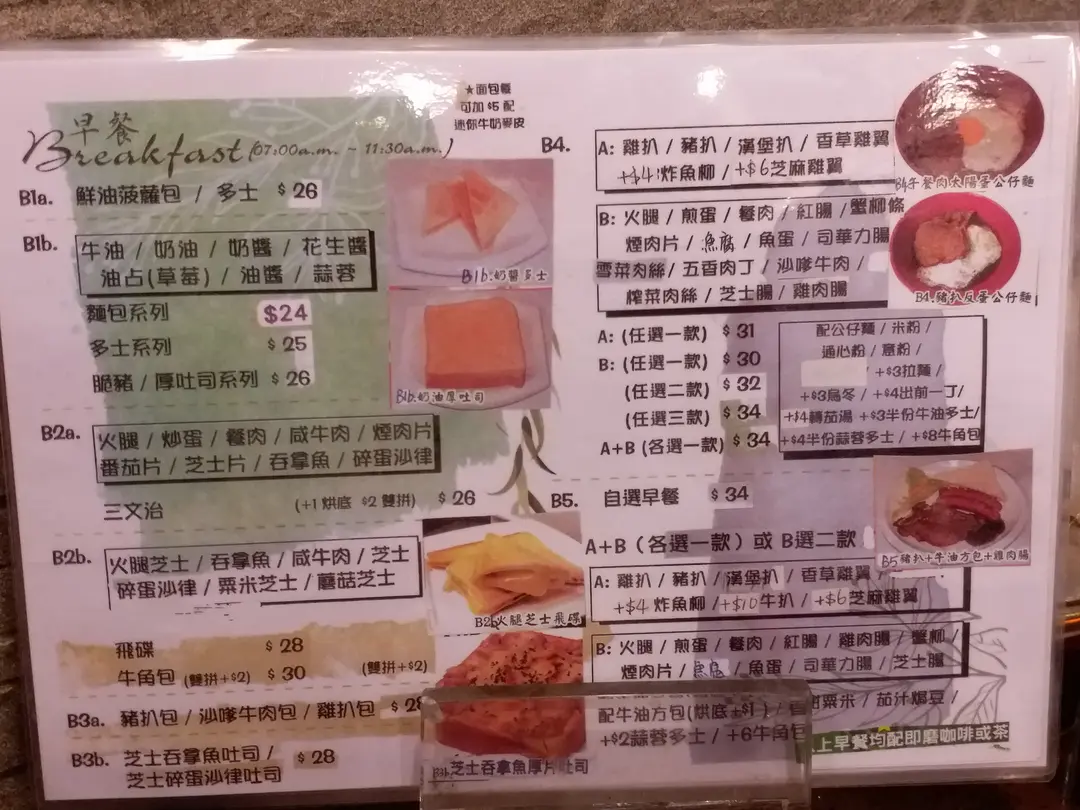 早餐
Breakfast (07:00a.m. ~ 11:30a.m.)
★面包餐
可加 $5 配
迷你牛奶麥皮
B1a. 鮮油菠蘿包 / 多士 $ 26
B1b. 牛油 / 奶油 / 奶醬 / 花生醬
油占(草莓) / 油醬 / 蒜蓉
麵包系列 $24
多士系列 $ 25
脆豬 / 厚吐司系列 $ 26
B1b.奶醬多士
B1b.奶油厚吐司
B2a. 火腿 / 炒蛋 / 餐肉 / 咸牛肉 / 煙肉片
番茄片 / 芝士片 / 吞拿魚 / 碎蛋沙律
三文治 (+1 烘底 $2 雙拼) $ 26
B2b. 火腿芝士 / 吞拿魚 / 咸牛肉 / 芝士
碎蛋沙律 / 粟米芝士 / 蘑菇芝士
B2b火腿芝士飛碟
飛碟 $ 28
牛角包 (雙拼+$2) $ 30 (雙拼+$2)
B3a. 豬扒包 / 沙嗲牛肉包 / 雞扒包 $ 28
B3b. 芝士吞拿魚吐司 /
芝士碎蛋沙律吐司 $ 28
B3b芝士吞拿魚厚片吐司
B4. A: 雞扒 / 豬扒 / 漢堡扒 / 香草雞翼
+$4炸魚柳 / +$6芝麻雞翼
B4餐肉太陽蛋公仔麵
B: 火腿 / 煎蛋 / 餐肉 / 紅腸 / 蟹柳條
煙肉片 / 魚腐 / 魚蛋 / 司華力腸
雪菜肉絲 / 五香肉丁 / 沙嗲牛肉 /
榨菜肉絲 / 芝士腸 / 雞肉腸
B4.豬扒反蛋公仔麵
A: (任選一款) $ 31
B: (任選一款) $ 30
(任選二款) $ 32
(任選三款) $ 34
A+B (各選一款) $ 34
配公仔麵 / 米粉 /
通心粉 / 意粉 /
+$3拉麵 /
+$3烏冬 / +$4出前一丁/
+$4轉茄湯 +$3半份牛油多士/
+$4半份蒜蓉多士 / +$8牛角包
B5. 自選早餐 $ 34
A+B (各選一款) 或 B選二款
B5豬扒+牛油方包+雞肉腸
A: 雞扒 / 豬扒 / 漢堡扒 / 香草雞翼 /
+$4 炸魚柳 /+$10牛扒 / +$6芝麻雞翼
B: 火腿 / 煎蛋 / 餐肉 / 紅腸 / 雞肉腸 / 蟹柳 /
煙肉片 / 魚腐 / 魚蛋 / 司華力腸 / 芝士腸
配牛油方包(烘底+$1) / 甜粟米 / 茄汁焗豆 /
+$2蒜蓉多士 / +6牛角包
上早餐均配即磨咖啡或茶